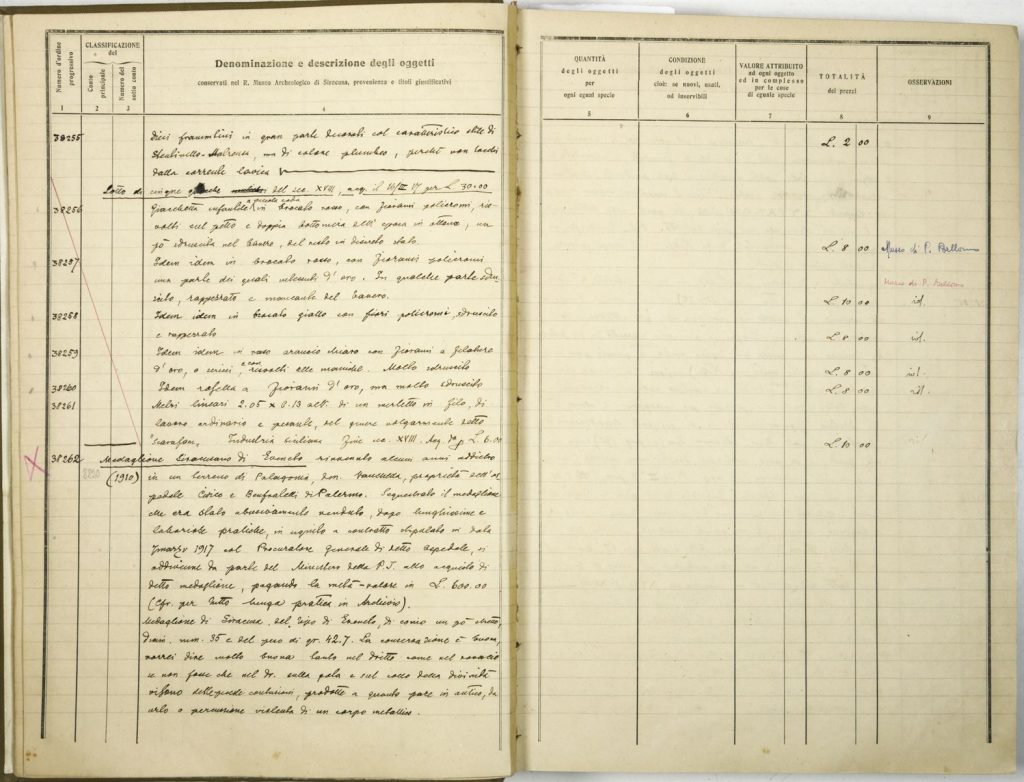 Numero d'ordine progressivo
CLASSIFICAZIONE
del
Conto principale
Numero del sotto conto
Denominazione e descrizione degli oggetti
conservati nel R. Museo Archeologico di Siracusa, provenienza e titoli giustificativi
1
2
3
4
38255
Dieci frammentini in gran parte decorati col caratteristico stile di
Stentinello-Matrensa, ma di colore plumbeo, perchè
dalla corrente lavica
Lotto di cinque del sec. XVIII, acq. il 14/III 17 per L. 30.00
38256
Giacchetta infantile in broccato rosso, con fiorami policromi,
sul petto e doppia bottoniera all'epoca in ottone, un
pò sdruscita nel bavero, del resto in discreto stato.
38257
Idem idem in broccato rosso, con fiorami policromi
una parte dei quali intessuti d'oro. In qualche parte
scito, rappezzato e mancante del bavero.
38258
Idem idem in broccato giallo con fiori policromi, sdruscito
e rappezzato
38259
Idem idem in raso arancio chiaro con fiorami a
d'oro, e con risvolti alle maniche. Molto sdruscito
38260
Idem a fiorami d'oro, ma molto sdruscito
38261
Metri lineari 2.05 x 0.13 alt. di un merletto in filo, di
lavoro ordinario e pesante, del genere volgarmente detto
Industria siciliana Fine sec. XVIII. Acq. L. 6.00
38262
Medaglione Siracusano di Eveneto rinvenuto alcuni anni addietro
(1910)
in un terreno di Palagonia, proprietà dell'os
pedale Civico e Benfratelli di Palermo. Sequestrato il medaglione
che era stato abusivamente venduto, dopo lunghissime e
laboriose pratiche, in seguito a contratto stipulato in data
marzo 1917 col Procuratore Generale di detto Ospedale, si
addivenne da parte del Ministero della P.I. allo acquisto di
detto medaglione, pagando la metà-valore in L. 600.00
(Cfr. per tutto lunga pratica in Archivio).
Medaglione di Siracusa, del tipo di Eveneto, di conio un pò stretto,
diam. mm. 35 e del peso di gr. 42.7. La conservazione è buona,
vorrei dire molto buona tanto nel diritto come nel rovescio
se non fosse che nel dr. sulla gola e sul collo della divinità
contusioni, prodotte a quanto pare in antico, da
urto o percussione violenta di un corpo metallico.
QUANTITÀ
degli oggetti
per
ogni egual specie
CONDIZIONE
degli oggetti
cioè: se nuovi, usati,
od inservibili
VALORE ATTRIBUITO
ad ogni oggetto
od in complesso
per le cose
di eguale specie
TOTALITÀ
dei prezzi
OSSERVAZIONI
5
6
7
8
9
L. 2 00
L. 8 00 Museo di P. Bellomo
Museo di P. Bellomo
L. 10 00 id.
L. 8 00 id.
L. 8 00 id.
L. 8 00 id.
L. 10 00